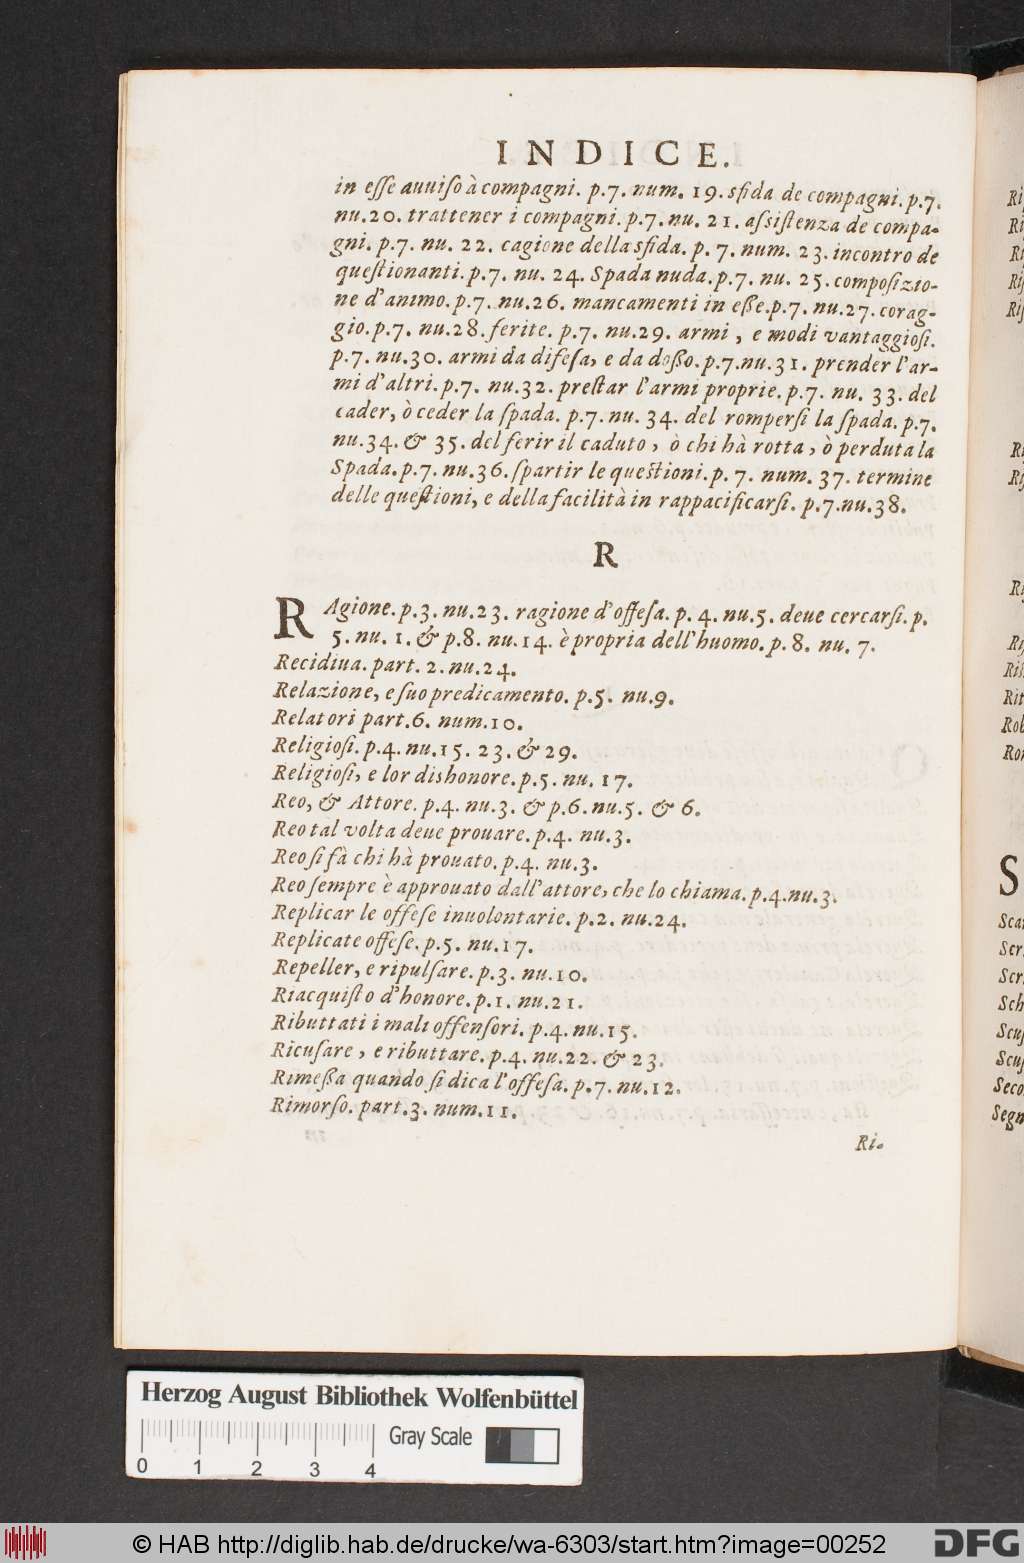 INDICE.
in eſſe auuiſo à compagni. p.7. num. 19. sfida de compagni. p.7.
nu.20. trattener i compagni. p.7. nu. 21. aſsiſtenza de compa-
gni. p.7. nu. 22. cagione della sfida. p. 7. num. 23. incontro de
queſtionanti. p.7. nu. 24. Spada nuda. p.7. nu. 25. compoſizio-
ne d'animo. p.7. nu.26. mancamenti in eße. p.7. nu.27. corag-
gio. p.7. nu.28. ferite. p.7. nu.29. armi, e modi vantaggioſi.
p.7. nu.30. armi da difeſa, e da doßo. p.7. nu.31. prender l'ar-
mi d'altri. p.7. nu.32. preſtar l'armi proprie. p.7. nu. 33. del
cader, ò ceder la ſpada. p.7. nu. 34. del romperſi la ſpada. p.7.
nu.34. & 35. del ferir il caduto, ò chi hà rotta, ò perduta la
Spada. p.7. nu.36. ſpartir le queſtioni. p. 7. num. 37. termine
delle queſtioni, e della facilità in rappacificarſi. p.7. nu.38.
R
RAgione. p.3. nu.23. ragione d'offeſa. p. 4. nu.5. deue cercarſi. p.
5. nu. 1. & p.8. nu.14. è propria dell'huomo. p.8. nu. 7.
Recidiua. part. 2. nu.24.
Relazione, e ſuo predicamento. p.5. nu.9.
Relatori part.6. num.10.
Religioſi. p.4. nu.15. 23. & 29.
Religioſi, e lor dishonore. p.5. nu. 17.
Reo, & Attore. p.4. nu.3. & p.6. nu.5. & 6.
Reo tal volta deue prouare. p.4. nu.3.
Reo ſi fà chi hà prouato. p.4. nu.3.
Reo ſempre è approuato dall'attore, che lo chiama. p.4. nu.3.
Replicar le offeſe inuolontarie. p.2. nu.24.
Replicate offeſe. p.5. nu.17.
Repeller, e ripulſare. p.3. nu.10.
Riacquiſto d'honore. p.1. nu.21.
Ributtati i mali offenſori. p.4. nu.15.
Ricuſare, e ributtare. p.4. nu.22. & 23.
Rimeßa quando ſi dica l'offeſa. p.7. nu.12.
Rimorſo. part.3. num.11.
Ri-
Herzog August Bibliothek Wolfenbüttel
Gray Scale
0 1 2 3 4
© HAB http://diglib.hab.de/drucke/wa-6303/start.htm?image=00252
DFG